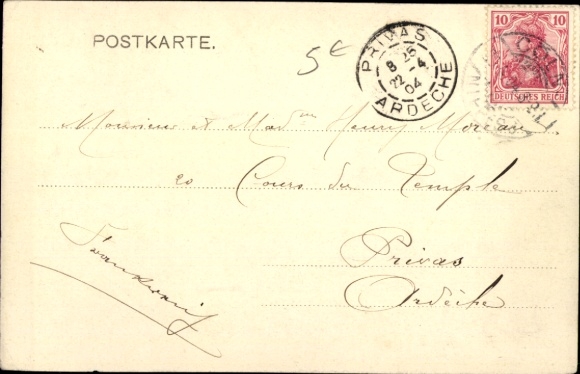 POSTKARTE.
5€
PRIVAS
8 25
22 -4
04
ARDÈCHE
10 10
DEUTSCHES REICH
Monsieur et Madme Henry Moreau
20 Cours du Temple
Privas
Ardèche